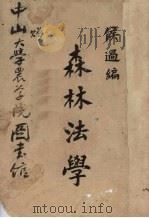 侯過編
森林法學
中山大學農學院圖書館